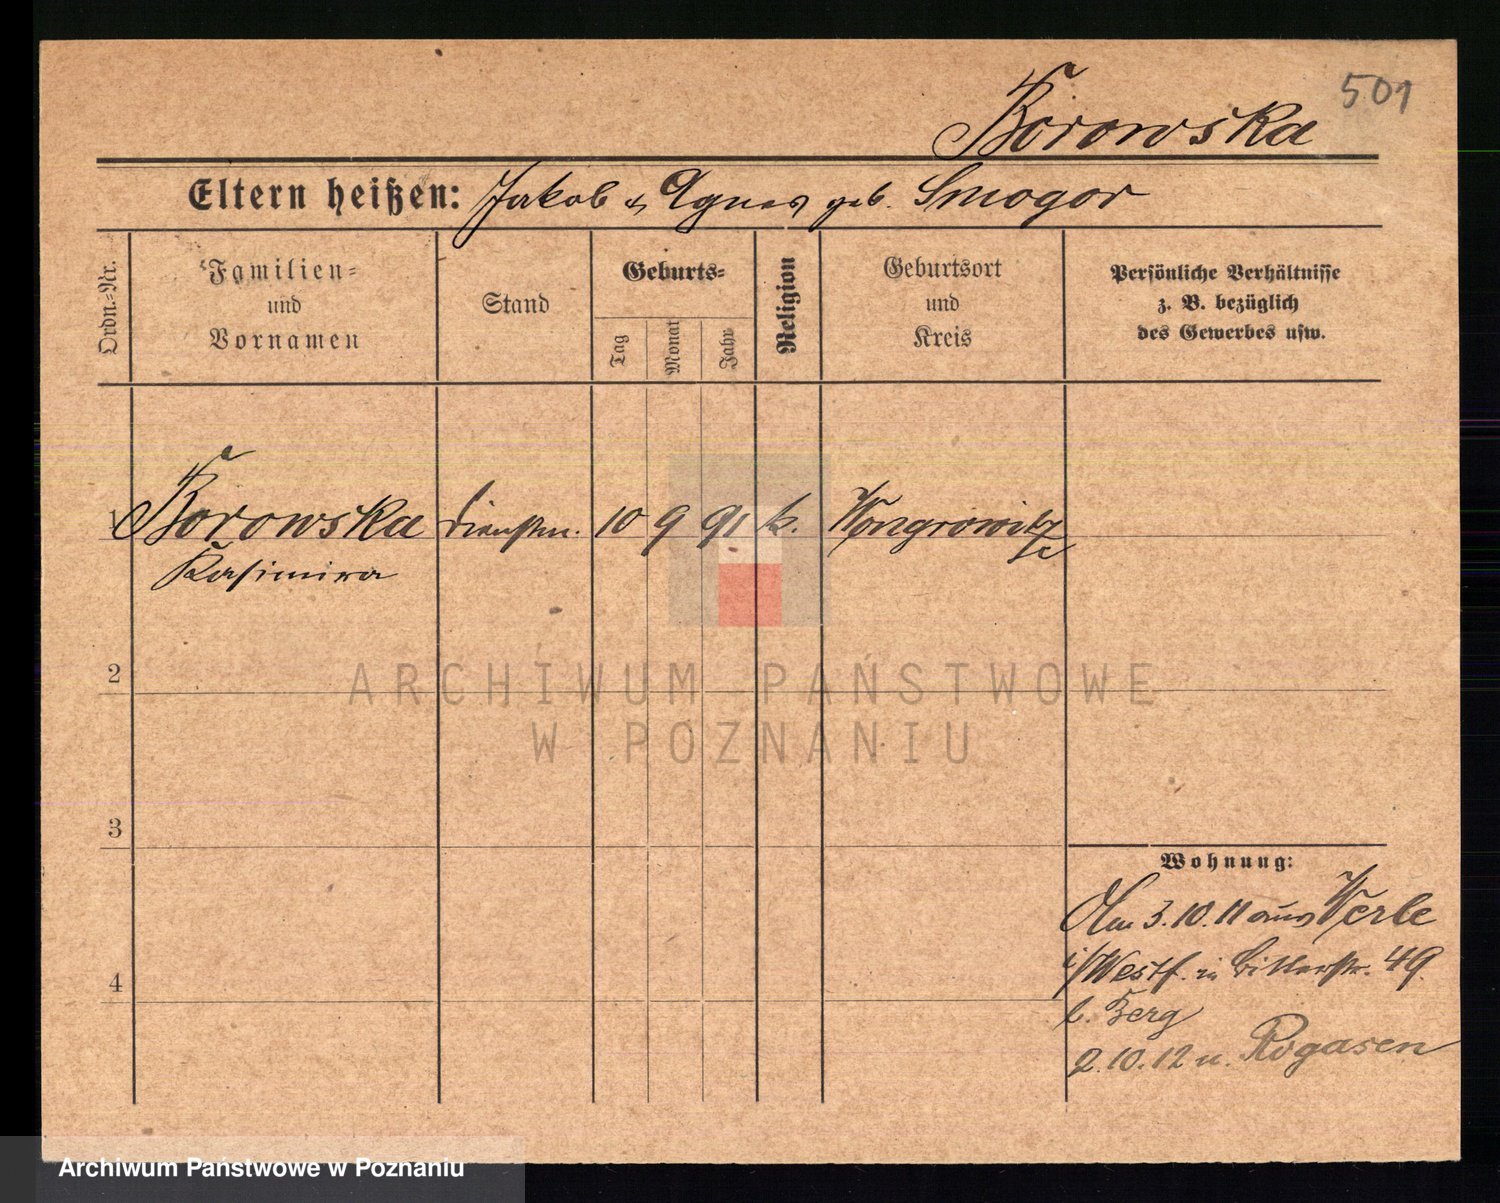 501
Borowska
Eltern heißen: Jakob & Agnes geb. Smogor
Ordn.-Nr.
Familien-
und
Vornamen
Stand
Geburts-
Tag
Monat
Jahr
Religion
Geburtsort
und
Kreis
Persönliche Verhältnisse
z. B. bezüglich
des Gewerbes usw.
1 Borowska Dienstm. 10 9 91 k. Wongrowitz
Kasimira
2
3
4
Wohnung:
Am 3.10.11 aus Werle
i/Westf. in Bitterstr. 49
b. Berg
2.10.12 n. Rogasen
ARCHIWUM PAŃSTWOWE
W POZNANIU
Archiwum Państwowe w Poznaniu